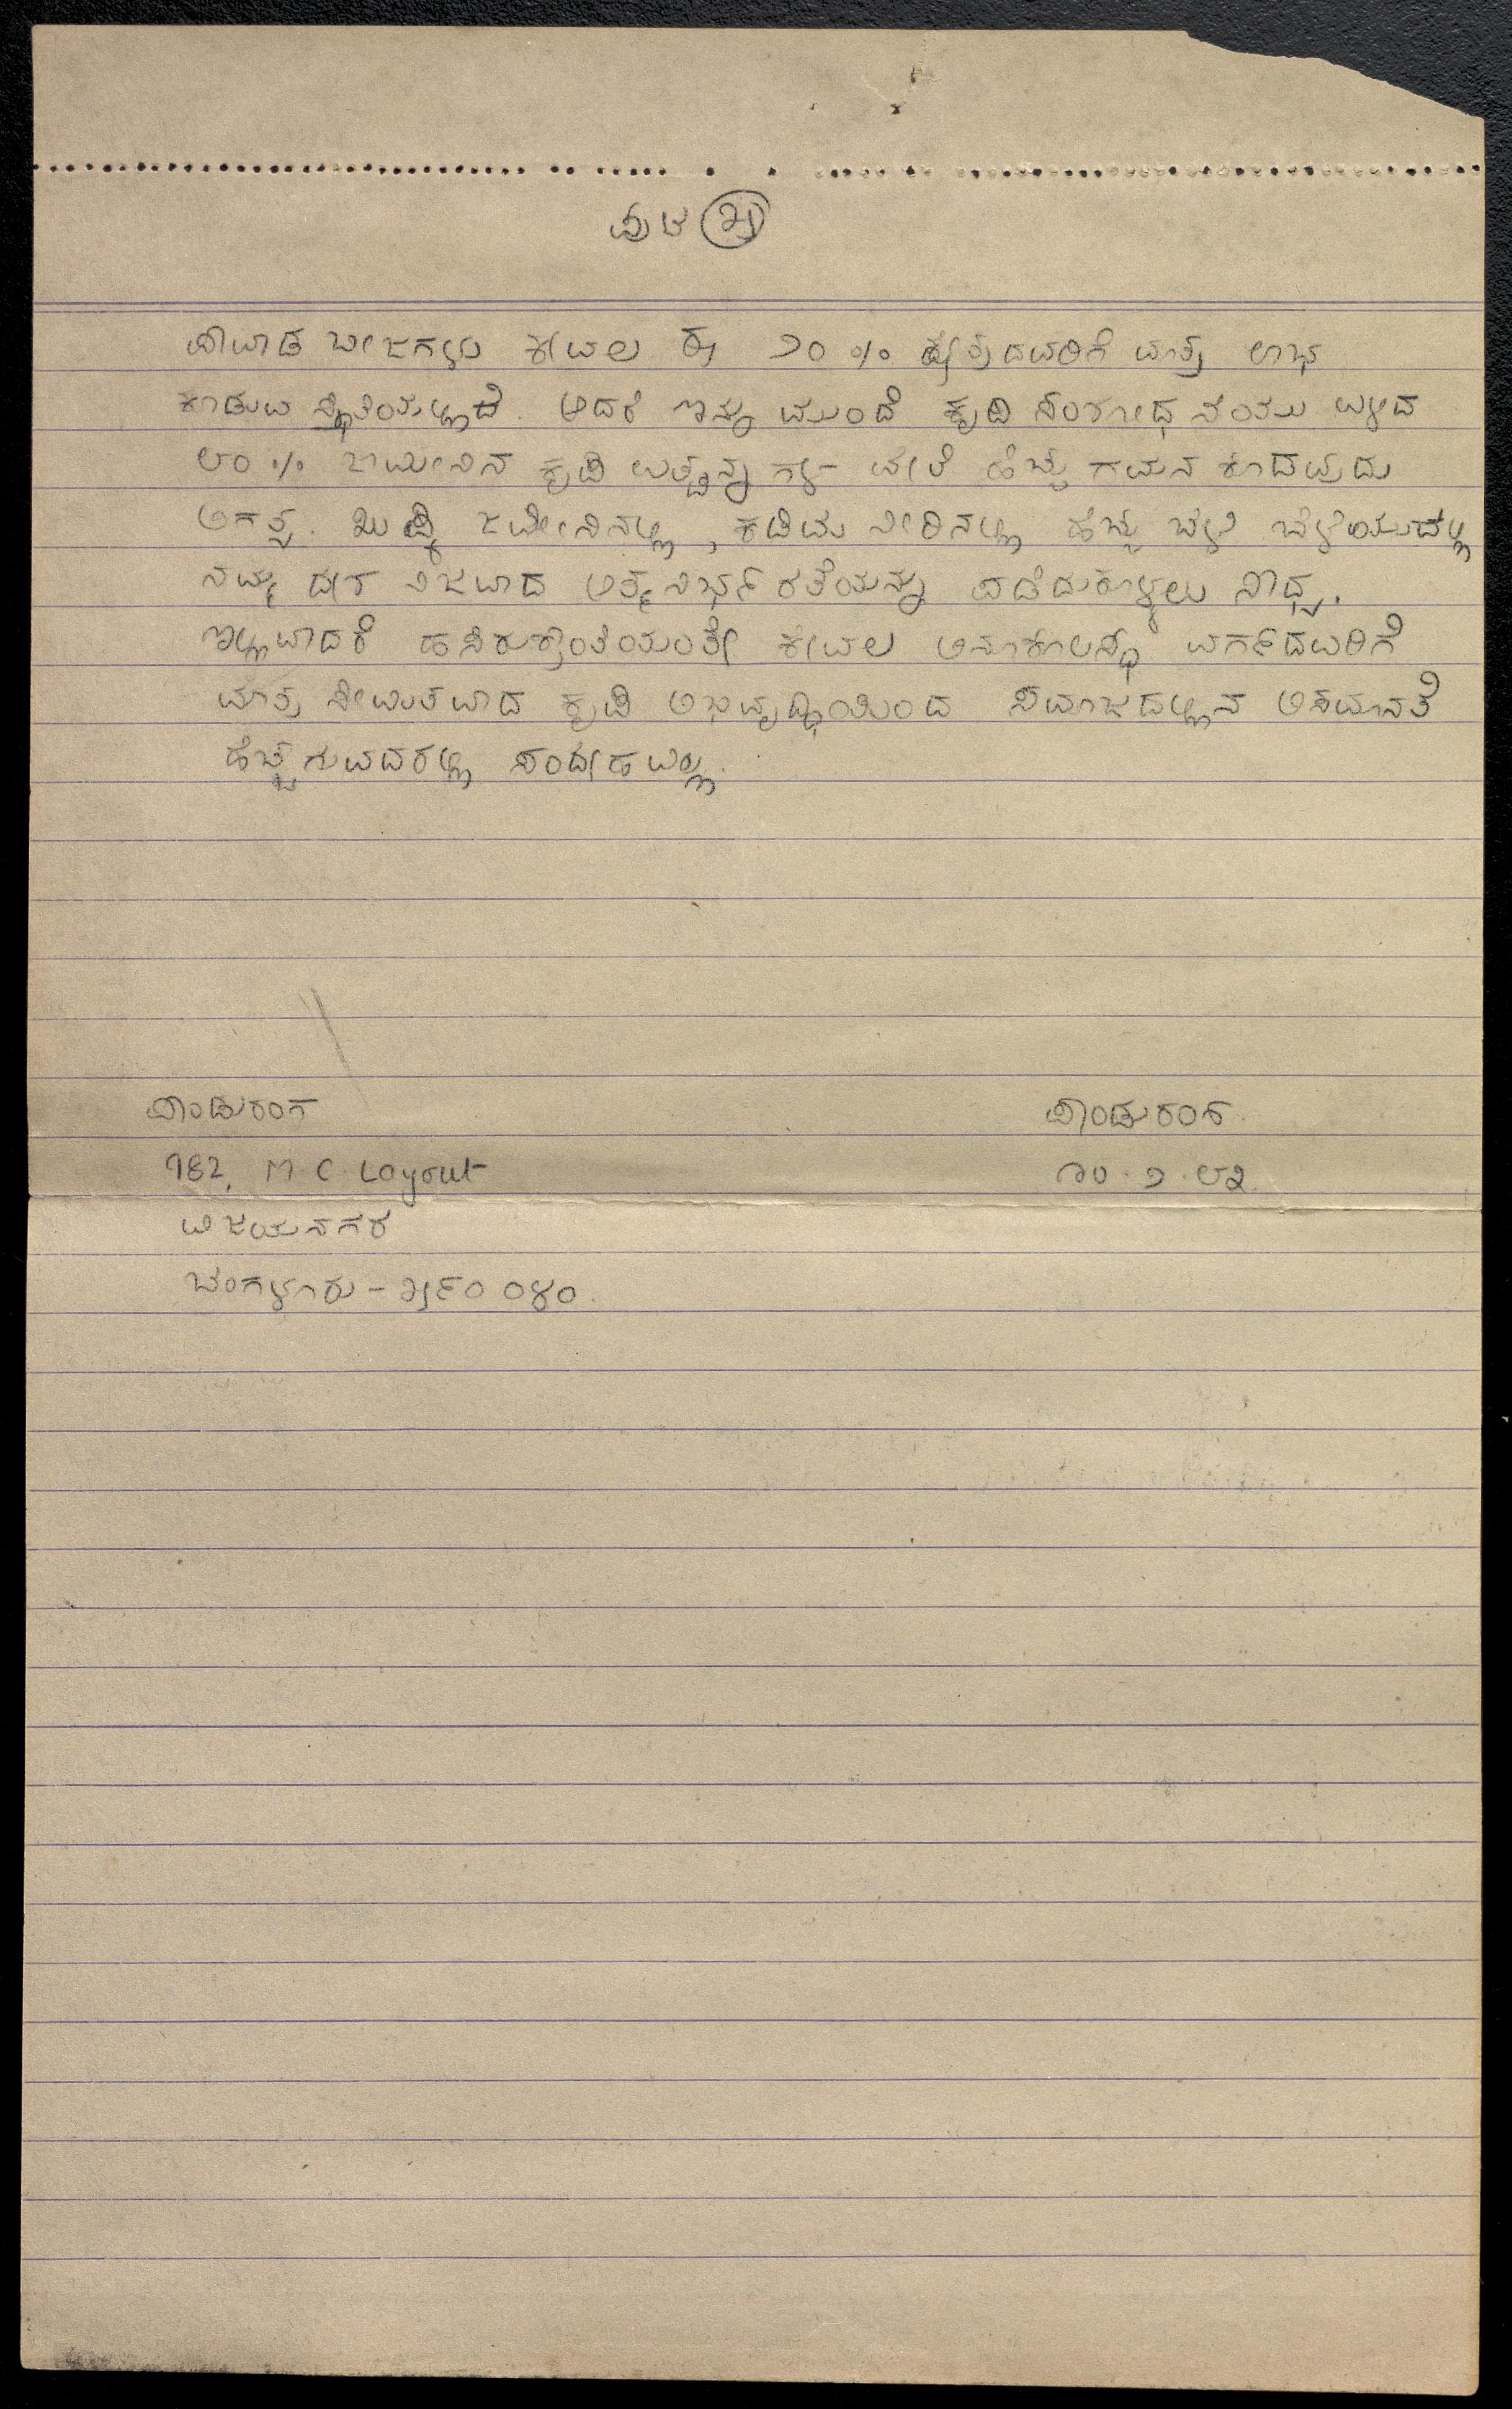 ಪುಟ ೫
ಪವಾಡ ಬೀಜಗಳು ಕೇವಲ ಈ ೨೦ % ಕ್ಷೇತ್ರದವರಿಗೆ ಮಾತ್ರ ಲಾಭ
ಕೊಡುವ ಸ್ಥಿತಿಯಲ್ಲಿದೆ. ಆದರೆ ಇನ್ನು ಮುಂದೆ ಕೃಷಿ ಸಂಶೋಧನೆಯು ಉಳಿದ
೮೦ % ಜಮೀನಿನ ಕೃಷಿ ಉತ್ಪನ್ನಗಳ ಮೇಲೆ ಹೆಚ್ಚು ಗಮನ ಕೊಡುವುದು
ಅಗತ್ಯ. ಖುಷ್ಕಿ ಜಮೀನಿನಲ್ಲಿ, ಕಡಿಮೆ ನೀರಿನಲ್ಲಿ ಹೆಚ್ಚು ಬೆಳೆ ಬೆಳೆಯುವಲ್ಲಿ
ನಮ್ಮ ದೇಶ ನಿಜವಾದ ಆತ್ಮನಿರ್ಭರತೆಯನ್ನು ಪಡೆದುಕೊಳ್ಳಲು ಸಾಧ್ಯ.
ಇಲ್ಲವಾದರೆ ಹಸಿರುಕ್ರಾಂತಿಯಂತೇ ಕೇವಲ ಅನುಕೂಲಸ್ಥ ವರ್ಗದವರಿಗೆ
ಮಾತ್ರ ಸೀಮಿತವಾದ ಕೃಷಿ ಅಭಿವೃದ್ಧಿಯಿಂದ ಸಮಾಜದಲ್ಲಿನ ಅಸಮಾನತೆ
ಹೆಚ್ಚಾಗುವದರಲ್ಲಿ ಸಂದೇಹವಿಲ್ಲ.
ಪಾಂಡುರಂಗ ಪಾಂಡುರಂಗ.
782, M.C. Layout ೧೦.೨.೮೩.
ವಿಜಯನಗರ
ಬೆಂಗಳೂರು - ೫೬೦ ೦೪೦.